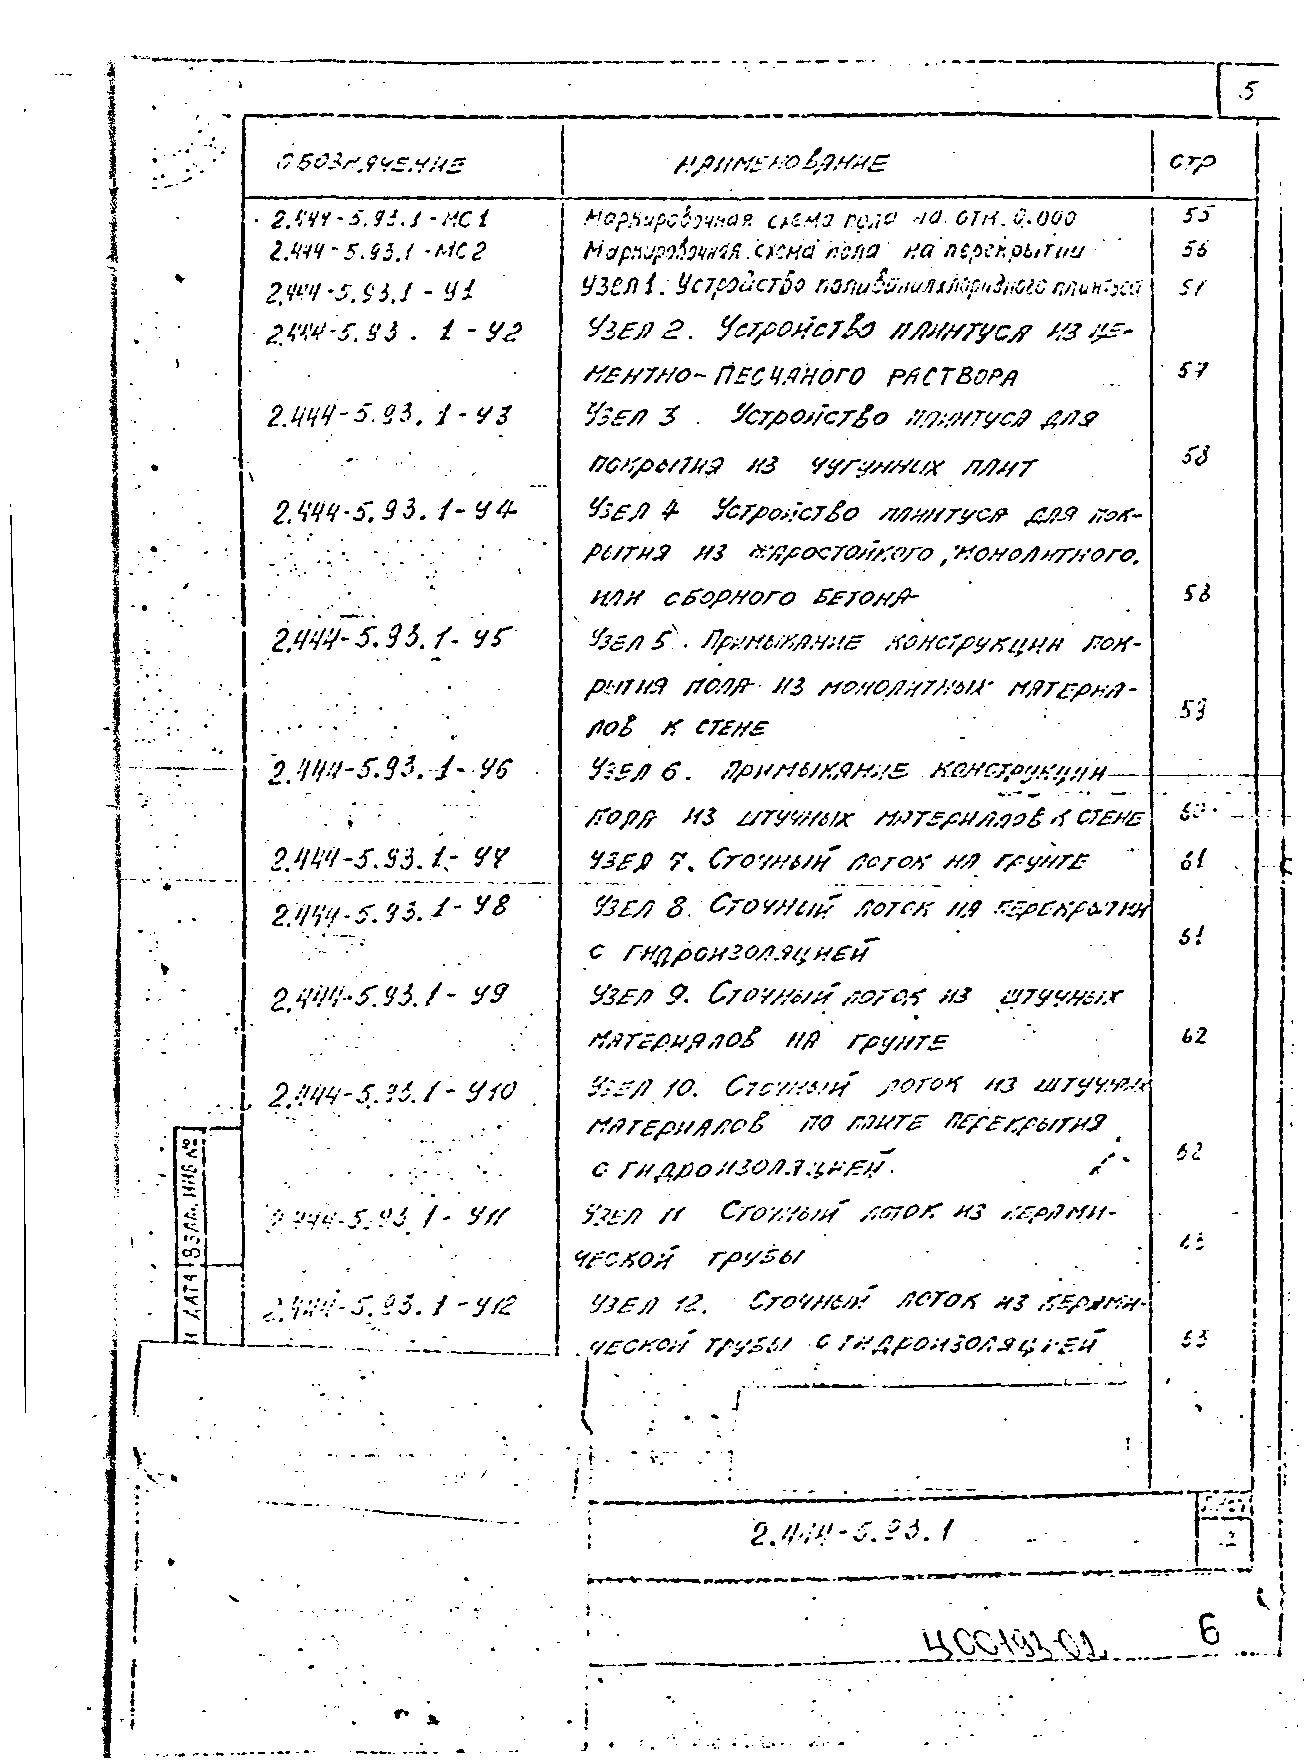 5
ОБОЗНАЧЕНИЕ НАИМЕНОВАНИЕ СТР
2.444-5.93.1-МС1 Маркировочная схема пола на отм. 0.000 55
2.444-5.93.1-МС2 Маркировочная схема пола на перекрытии 56
2.444-5.93.1-У1 Узел 1. Устройство поливинилхлоридного плинтуса
2.444-5.93.1-У2 Узел 2. Устройство плинтуса из це-
ментно-песчаного раствора 57
2.444-5.93.1-У3 Узел 3. Устройство плинтуса для
покрытия из чугунных плит 58
2.444-5.93.1-У4 Узел 4 Устройство плинтуса для пок-
рытия из жаростойкого, монолитного,
или сборного бетона 58
2.444-5.93.1-У5 Узел 5. Примыкание конструкции пок-
рытия пола из монолитных материа-
лов к стене 59
2.444-5.93.1-У6 Узел 6. Примыкание конструкции
пола из штучных материалов к стене 60
2.444-5.93.1-У7 Узел 7. Сточный лоток на грунте 61
2.444-5.93.1-У8 Узел 8. Сточный лоток на перекрытии
с гидроизоляцией 61
2.444-5.93.1-У9 Узел 9. Сточный лоток из штучных
материалов на грунте 62
2.444-5.93.1-У10 Узел 10. Сточный лоток из штучных
материалов по плите перекрытия
с гидроизоляцией. 62
2.444-5.93.1-У11 Узел 11 Сточный лоток из керами-
ческой трубы 63
2.444-5.93.1-У12 Узел 12. Сточный лоток из керами-
ческой трубы с гидроизоляцией 63
ВЗАМ. ИНВ №
И ДАТА
2.444-5.93.1
Лист
2
Ц00193-02 6